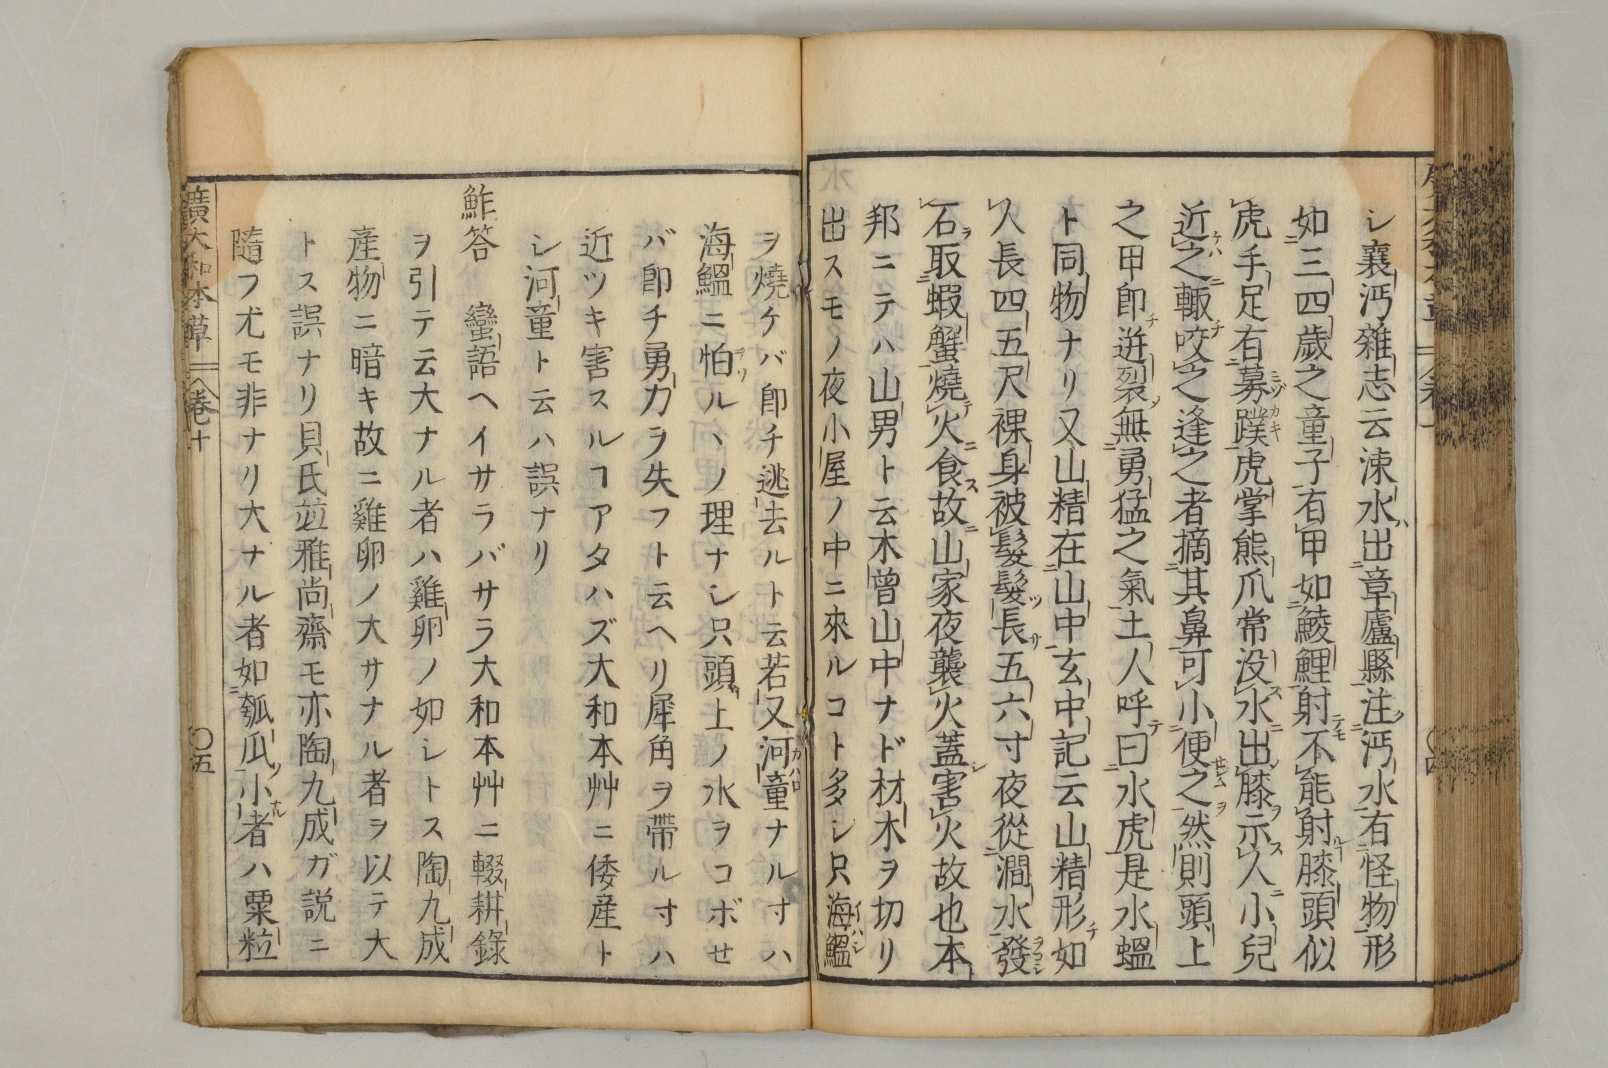 シ襄沔雜志云涑水出章廬縣注沔水有怪物形
如三四歲之童子有甲如鯪鯉射不能射膝頭似
虎手足有募蹼虎掌熊爪常没水出膝示人小兒
近之輙咬之逢之者摘其鼻可小便之然則頭上
之甲卽迸裂無勇猛之氣土人呼曰水虎是水蝹
ト同物ナリ又山精在山中玄中記云山精形如
人長四五尺裸身被髮髮長五六寸夜從澗水發
石取蝦蟹燒火食故山家夜襲火蓋害火故也本
邦ニテハ山男ト云木曾山中ナド材木ヲ切リ
出スモノ夜小屋ノ中ニ來ルコト多シ只海鰮
ヲ燒ケバ卽チ逃去ルト云若又河童ナルヿハ
海鰮ニ怕ルヽノ理ナシ只頭上ノ水ヲコボせ
バ卽チ勇力ヲ失フト云ヘリ犀角ヲ帶ルヿハ
近ツキ害スルヿアタハズ大和本艸ニ倭産ト
シ河童ト云ハ誤ナリ
鮓答　蠻語ヘイサラバサラ大和本艸ニ輟耕錄
ヲ引テ云大ナル者ハ雞卵ノ如シトス陶九成
産物ニ暗キ故ニ雞卵ノ大サナル者ヲ以テ大
トス誤ナリ貝氏竝雅尚齋モ亦陶九成ガ説ニ
隨フ尤モ非ナリ大ナル者如瓠瓜小者ハ粟粒
廣大和本草　卷十　〇五